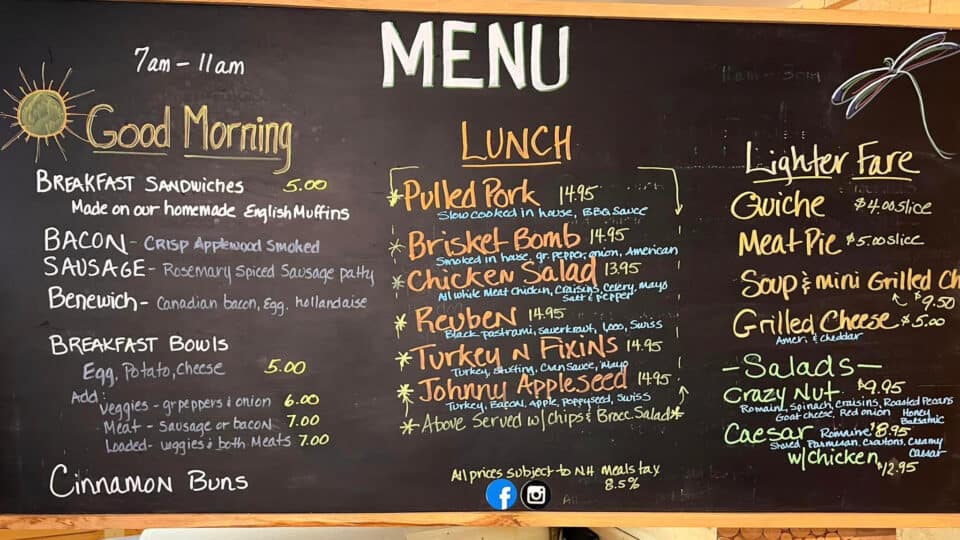 MENU
7am - 11am
Good Morning
BREAKFAST SANDWICHES 5.00
Made on our homemade English Muffins
BACON - CRISP Applewood Smoked
SAUSAGE - Rosemary Spiced Sausage patty
Benewich - Canadian bacon, Egg, hollandaise
BREAKFAST BOWLS
Egg, Potato, cheese 5.00
Add:
Veggies - gr peppers & onion 6.00
Meat - Sausage or bacon 7.00
Loaded - veggies & both Meats 7.00
Cinnamon Buns
LUNCH
*Pulled Pork 14.95
Slow cooked in house, BBQ Sauce
*Brisket Bomb 14.95
Smoked in house, gr. pepper, onion, American
*Chicken Salad 13.95
All White Meat Chicken, Craisins, Celery, Mayo
Salt & pepper
*Reuben 14.95
Black pastrami, Sauerkraut, 1000, Swiss
*Turkey N Fixins 14.95
Turkey, Stuffing, Cran Sauce, Mayo
*Johnny Appleseed 14.95
Turkey, Bacon, apple, poppyseed, Swiss
*Above Served w/chips & Brocc Salad*
All prices subject to NH meals tax
8.5%
11am - 3pm
Lighter Fare
Quiche $4.00 Slice
Meat Pie $5.00 slice
Soup & mini Grilled Ch
$9.50
Grilled Cheese $5.00
Amer. & cheddar
- Salads -
Crazy Nut $9.95
Romain, Spinach, craisins, Roasted Pecans
Goat cheese, Red onion Honey
Balsamic
Caesar Romaine $8.95
Shaved, Parmesan, Croutons, Creamy
Caesar
w/chicken $12.95